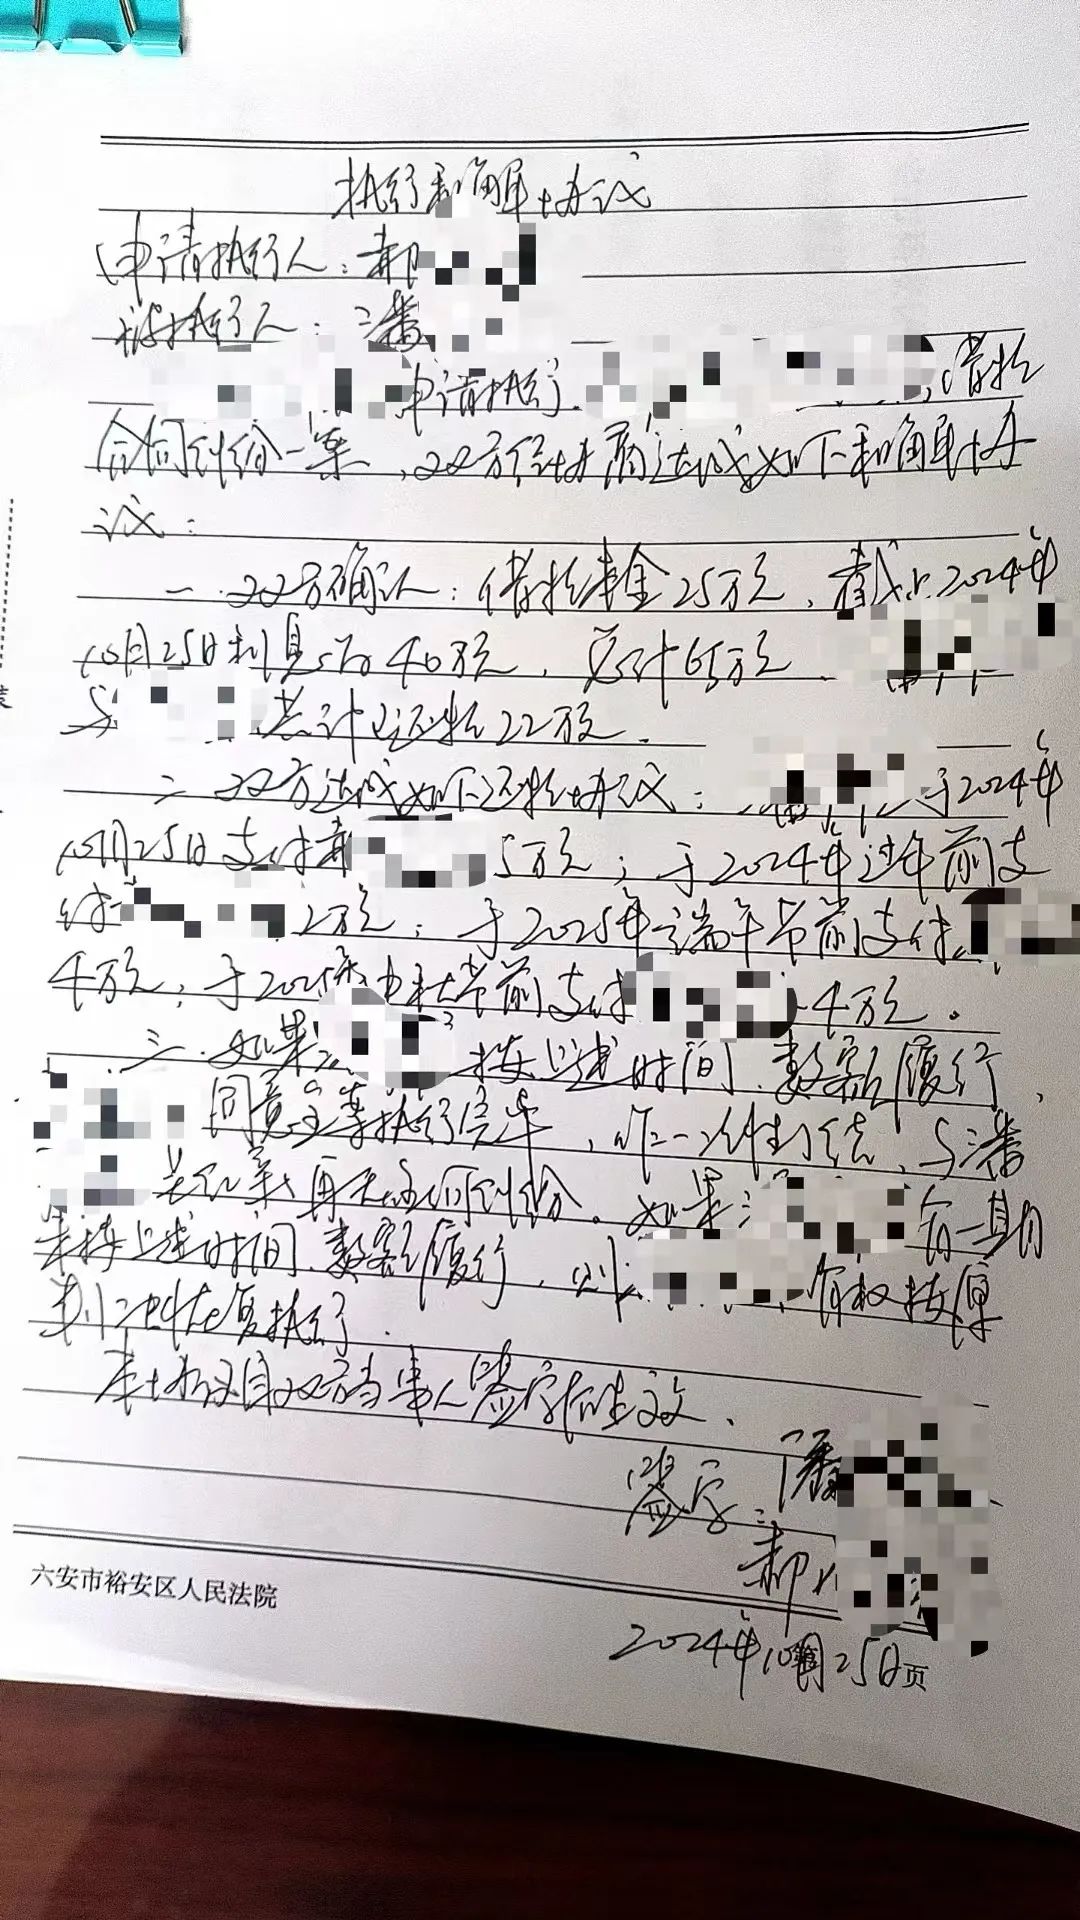 执行和解协议
申请执行人：郝
被执行人：潘
申请执行 借款
合同纠纷一案，双方经协商达成如下和解协
议：
一、双方确认：借款本金25万元，截止2024年
10月25日利息为40万元，总计65万元
与 共计已还款22万元。
二、双方达成如下还款协议： 于2024年
10月25日支付郝 5万元；于2024年过年前支
付 2万元；于2025年端午节前支付
4万元；于2025年中秋节前支付 4万元。
三、如果 按上述时间、数额履行，
同意全案执行完毕，作一次性了结，与潘
其他案再无任何纠纷。如果 有一期
未按上述时间、数额履行，则 有权按原
判决书恢复执行。
本协议自双方当事人签字后生效。
签字：潘
郝
六安市裕安区人民法院
2024年10月25日
页
装